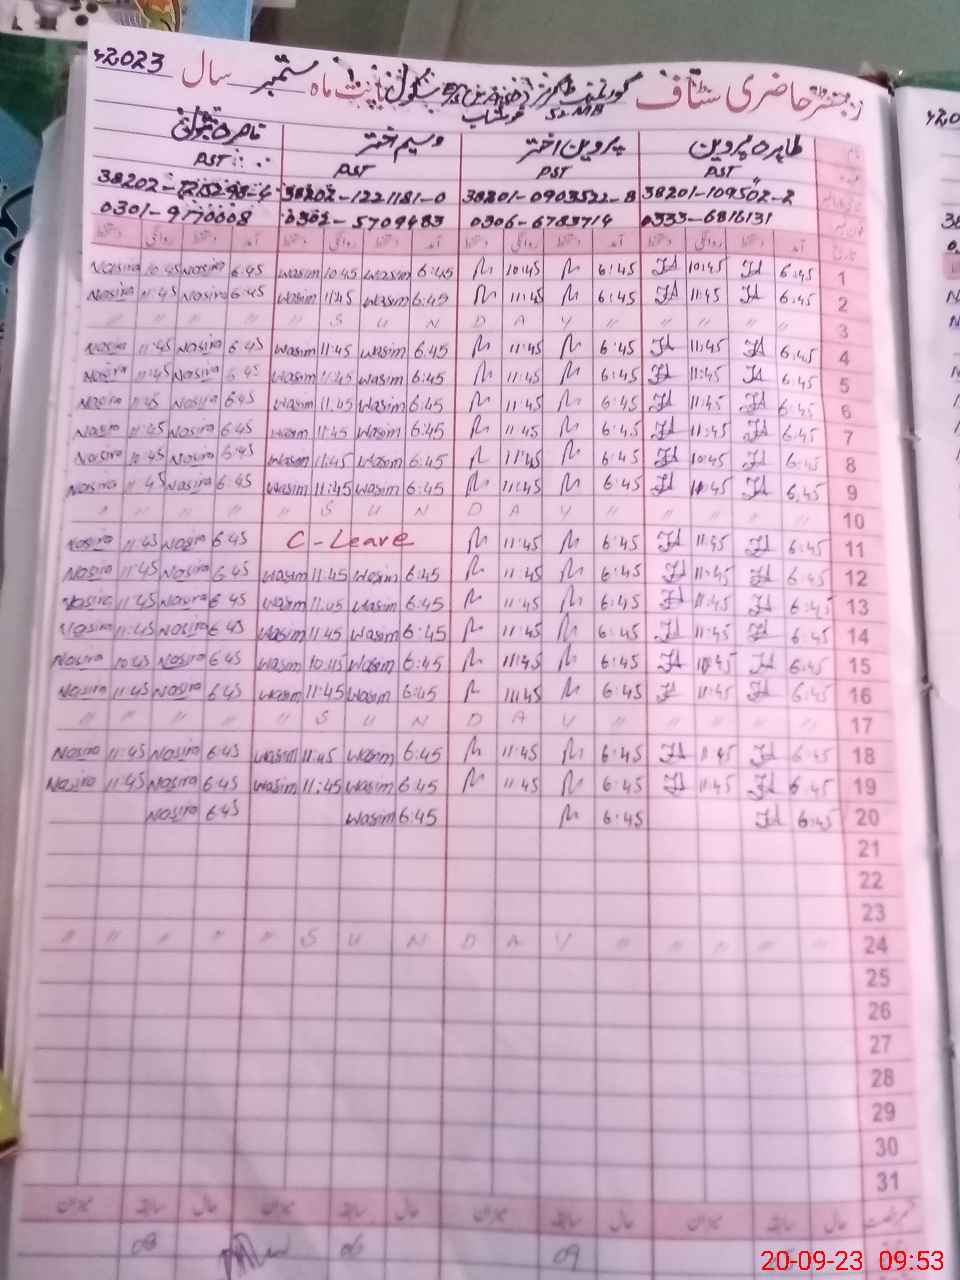 رجسٹر حاضری سٹاف گورنمنٹ سکول بابت ماہ ستمبر سال 2023ء
طاہرہ پروین پروین اختر وسیم اختر
PST PST PST PST
38201-0903522-8 38202-1221181-0 38202-
0333-6816131 0306-6783714 0302-5709483 0301-9170008
آمد دستخط روانگی دستخط آمد دستخط روانگی دستخط آمد دستخط روانگی دستخط آمد دستخط روانگی دستخط
Nasira 10:45 Nasira 6:45 Wasim 10:45 Wasim 6:45 10:45 6:45 10:45 6:45 1
Nasira 11:45 Nasira 6:45 Wasim 11:45 Wasim 6:45 11:45 6:45 11:45 6:45 2
" " " " " S U N D A Y " " " " " 3
Nasira 11:45 Nasira 6:45 Wasim 11:45 Wasim 6:45 11:45 6:45 11:45 6:45 4
Nasira 11:45 Nasira 6:45 Wasim 11:45 Wasim 6:45 11:45 6:45 11:45 6:45 5
Nasira 11:45 Nasira 6:45 Wasim 11:45 Wasim 6:45 11:45 6:45 11:45 6:45 6
Nasira 11:45 Nasira 6:45 Wasim 11:45 Wasim 6:45 11:45 6:45 11:45 6:45 7
Nasira 10:45 Nasira 6:45 Wasim 11:45 Wasim 6:45 11:45 6:45 10:45 6:45 8
Nasira 11:45 Nasira 6:45 Wasim 11:45 Wasim 6:45 11:45 6:45 11:45 6:45 9
" " " " " S U N D A Y " " " " " 10
Nasira 11:45 Nasira 6:45 C-Leave 11:45 6:45 11:45 6:45 11
Nasira 11:45 Nasira 6:45 Wasim 11:45 Wasim 6:45 11:45 6:45 11:45 6:45 12
Nasira 11:45 Nasira 6:45 Wasim 11:45 Wasim 6:45 11:45 6:45 11:45 6:45 13
Nasira 11:45 Nasira 6:45 Wasim 11:45 Wasim 6:45 11:45 6:45 11:45 6:45 14
Nasira 10:45 Nasira 6:45 Wasim 10:45 Wasim 6:45 6:45 6:45 15
Nasira 11:45 Nasira 6:45 Wasim 11:45 Wasim 6:45 11:45 6:45 11:45 6:45 16
" " " " " S U N D A Y " " " " " 17
Nasira 11:45 Nasira 6:45 Wasim 11:45 Wasim 6:45 11:45 6:45 11:45 6:45 18
Nasira 11:45 Nasira 6:45 Wasim 11:45 Wasim 6:45 11:45 6:45 11:45 6:45 19
Nasira 6:45 Wasim 6:45 6:45 6:45 20
21
22
23
" " " " " S U N D A Y " " " " " 24
25
26
27
28
29
30
31
حال سابقہ میزان حال سابقہ میزان حال سابقہ میزان حال سابقہ میزان
08 06 09
20-09-23 09:53